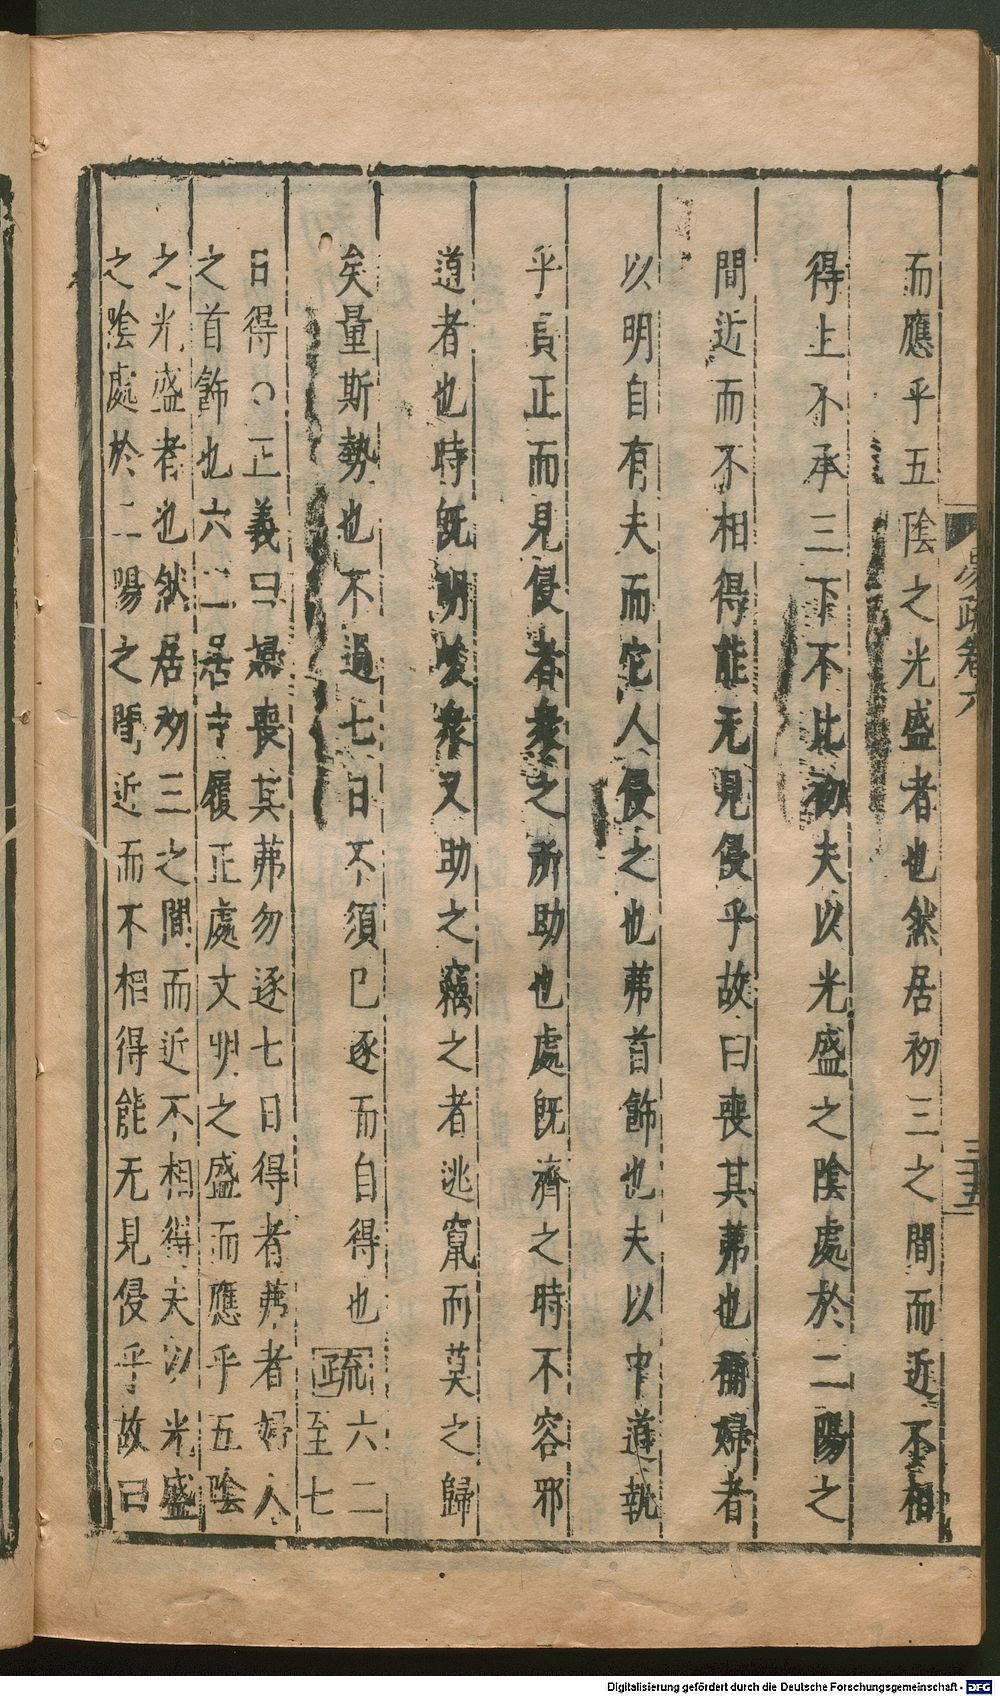 易疏卷六
三十五
而應乎五陰之光盛者也然居初三之間而近不相
得上不承三下不比初夫以光盛之陰處於二陽之
間近而不相得能无見侵乎故曰喪其茀也稱婦者
以明自有夫而它人侵之也茀首飾也夫以中道執
乎貞正而見侵者衆之所助也處旣濟之時不容邪
道者也時旣明峻衆又助之竊之者逃竄而莫之歸
矣量斯勢也不過七日不須已逐而自得也疏六二
至七
日得○正義曰婦喪其茀勿逐七日得者茀者婦人
之首飾也六二居中履正處文明之盛而應乎五陰
之光盛者也然居初三之間而近不相得夫以光盛
之陰處於二陽之間近而不相得能无見侵乎故曰
Digitalisierung gefördert durch die Deutsche Forschungsgemeinschaft - DFG